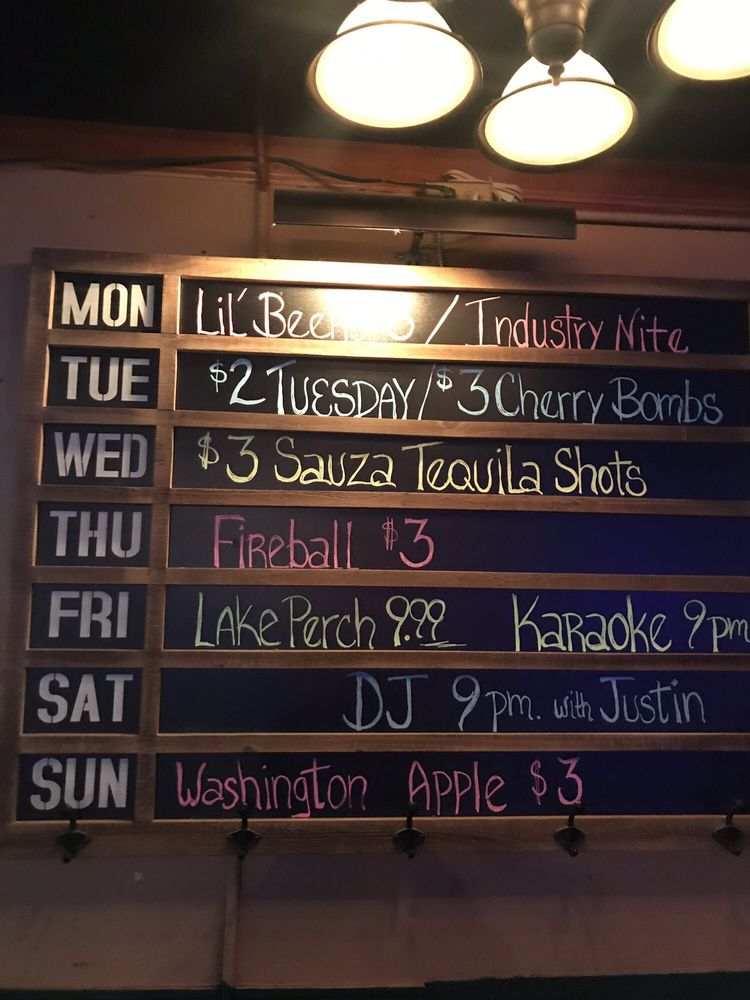 MON Lil' / Industry Nite
TUE $2 TUESDAY/$3 Cherry Bombs
WED $3 Sauza Tequila Shots
THU Fireball $3
FRI Lake Perch 9.99 Karaoke 9pm
SAT DJ 9pm. with Justin
SUN Washington Apple $3